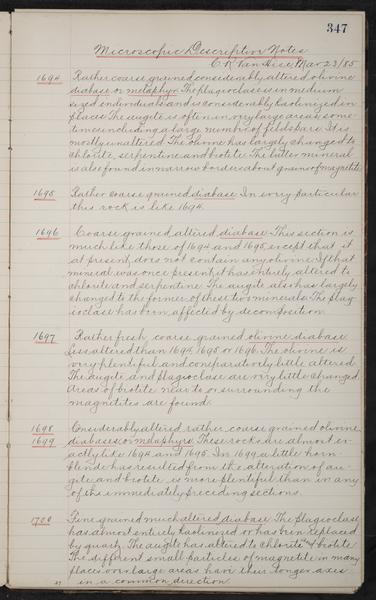 347
Microscopic Descriptive Notes
C. R. Van Hise, Mar 23/85
1694 Rather coarse grained considerably altered olivine
diabase or melaphyr. The plagioclase is in medium
sized individuals and is considerably kaolinized in
places. The augite is often in very large areas some-
times including a large number of feldspars. It is
mostly unaltered. The olivine has largely changed to
chlorite, serpentine and biotite. The latter mineral
is also found in narrow borders about grains of magnetite.
1695 Rather coarse grained diabase. In every particular
this rock is like 1694.
1696 Coarse grained altered diabase. This section is
much like those of 1694 and 1695 except that it
at present does not contain any olivine. If that
mineral was once present, it has entirely altered to
chlorite and serpentine. The augite also has largely
changed to the former of these two minerals. The plag-
ioclase has been affected by decomposition.
1697 Rather fresh coarse grained olivine diabase
Less altered than 1694, 1695 or 1696. The olivine is
very plentiful and comparatively little altered.
The augite and plagioclase are very little changed.
Areas of biotite near to or surrounding the
magnetites are found.
1698 Considerably altered rather coarse grained olivine
1699 diabases or melaphyrs. These rocks are almost ex-
actly like 1694 and 1695. In 1699 a little horn-
blende has resulted from the alteration of au-
gite and biotite is more plentiful than in any
of the immediately preceding sections.
1700 Fine grained much altered diabase. The plagioclase
has almost entirely kaolinized or has been replaced
by quartz. The augite has altered to chlorite and biotite.
The different small particles of magnetite in many
places over large areas have their longer axes
in a common direction